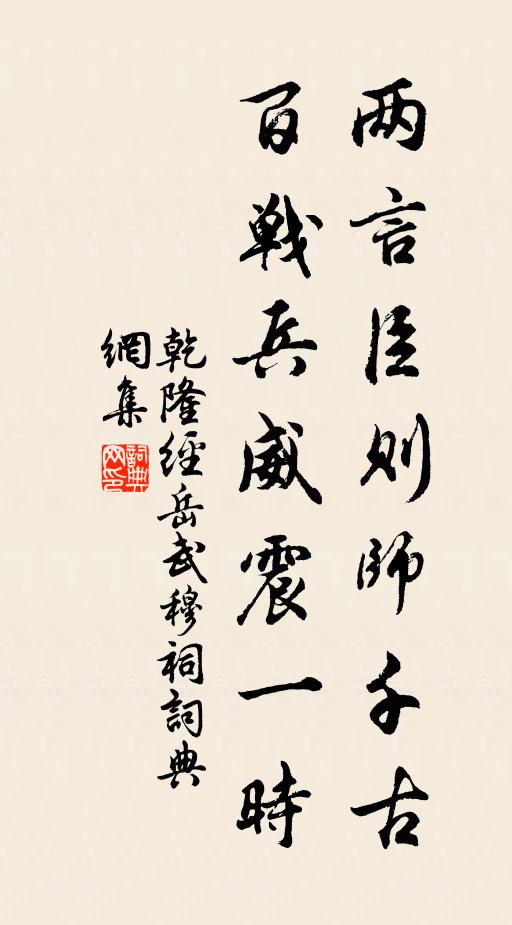 两言臣则師千古
百戦兵威震一時
乾隆經岳武穆祠詞典
網集
詞典
网印